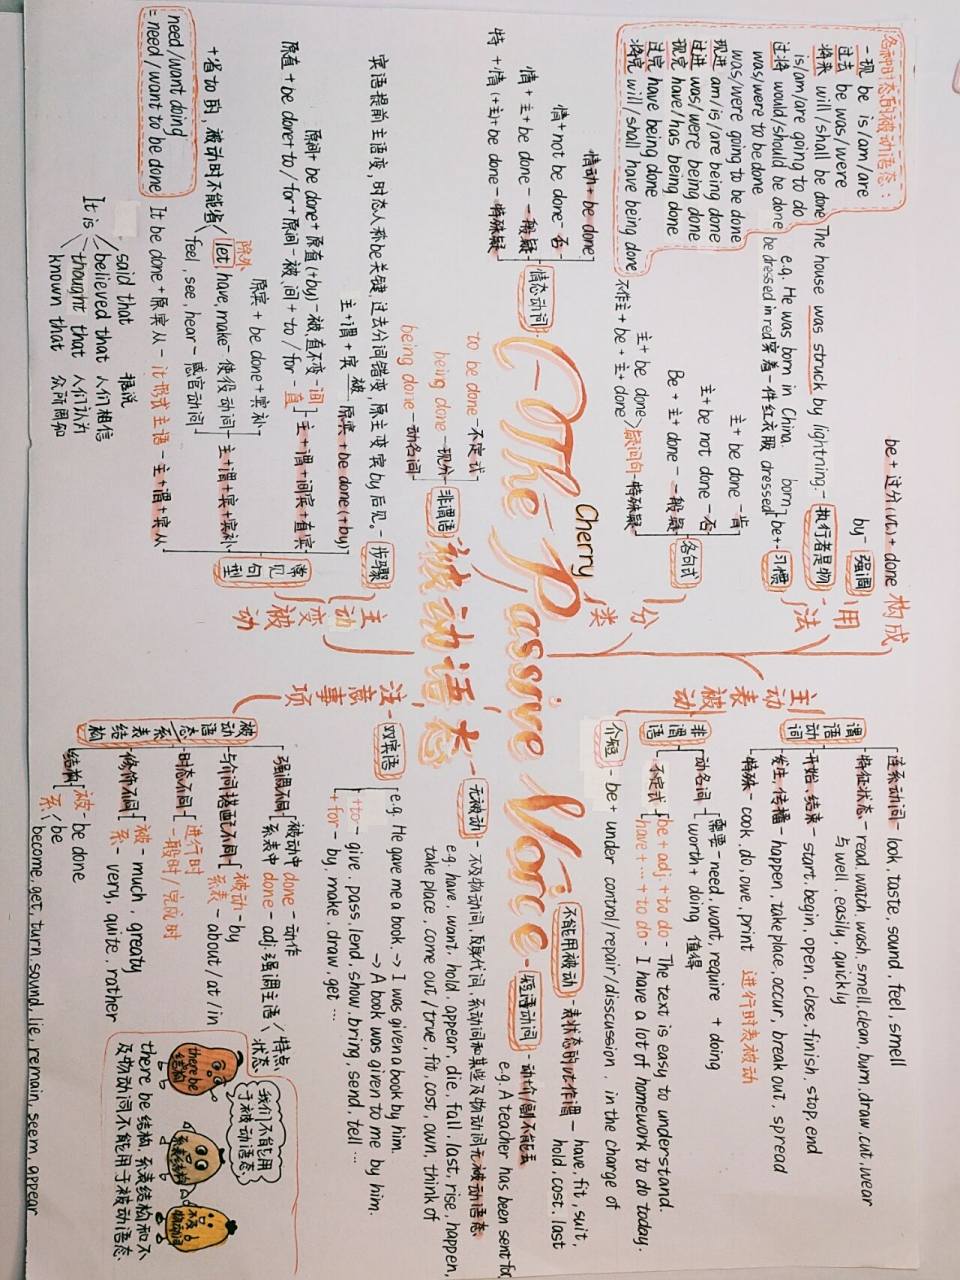 The Passive Voice
Cherry
被动语态
构成
be + 过分(vt.) + done
用法
强调
by-
执行者是物
The house was struck by lightning.-
习惯
be+
born
dressed
e.g. He was born in China.
be dressed in red 穿着一件红衣服
各种时态的被动语态:
一现 be is/am/are
过去 be was/were
将来 will/shall be done
is/am/are going to do
过将 would/should be done
was/were to be done
was/were going to be done
现进 am/is/are being done
过进 was/were being done
现完 have/has being done
过完 have being done
将完 will/shall have being done
分类
各句式
主+be done-肯
主+be not done-否
Be+主+done-一般疑
主+be done
不作主+be+主+done
疑问句-特殊疑
情态动词
情动+be done
情+not be done-否
情+主+be done-一般疑
特+情(+主)+be done-特殊疑
非谓语
to be done-不定式
being done-现分
being done-动名词
主动变被动
步骤
宾语提前主语变,时态人称be关键,过去分词错变,原主变宾by后见。-
常见句型
主+谓+宾 被 原宾+be done(+by)
原间+be done+原直(+by)-被直不变-间
原直+be done+to/for+原间-被,间+to/for-直
主+谓+间宾+直宾
原宾+be done+宾补
除外
let, have, make-使役动词
feel, see, hear-感官动词
主+谓+宾+宾补
+省to的,被动时不能省
need/want doing
=need/want to be done
It be done+原宾从-it形式主语-主+谓+宾从
It is
said that 据说
believed that 人们相信
thought that 人们认为
known that 众所周知
主动表被动
谓语动词
连系动词-look, taste, sound, feel, smell
特征状态-read, watch, wash, smell, clean, burn, draw, cut, wear
与well, easily, quickly
开始、结束-start, begin, open, close, finish, stop, end
发生、传播-happen, take place, occur, break out, spread
特殊-cook, do, owe, print 进行时表被动
非谓语
动名词
需要-need, want, require + doing
worth+doing 值得
不定式
be+adj.+to do-The text is easy to understand.
have+…+to do-I have a lot of homework to do today.
介短
-be+ under control/repair/discussion, in the charge of
注意事项
不能用被动
-表状态的vt.作谓-have, fit, suit,
hold, cost, last
短语动词
-动介/副不能丢
e.g. A teacher has been sent for
无被动
-不及物动词,反身代词,系动词和某些及物动词无被动语态
e.g. have, want, hold, appear, die, fall, last, rise, happen,
take place, come out/true, fit, cost, own, think of
双宾语
e.g. He gave me a book. → I was given a book by him.
→ A book was given to me by him.
+to-give, pass, lend, show, bring, send, tell…
+for-by, make, draw, get…
被动语态/系表结构
强调不同
被动中done-动作
系表中done-adj.强调主语
特点
状态
与介词搭配不同
被动-by
系表-about/at/in
时态不同
进行时
一般时/完成时
修饰不同
被-much, greaty
系-very, quite, rather
结构
被-be done
系
be
become, get, turn, sound, lie, remain, seem, appear
我们不能用于被动语态
there be结构
系表结构
不及物动词
there be结构,系表结构和不
及物动词不能用于被动语态